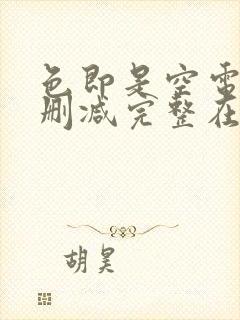 色即是空電
删减完整在
胡昊